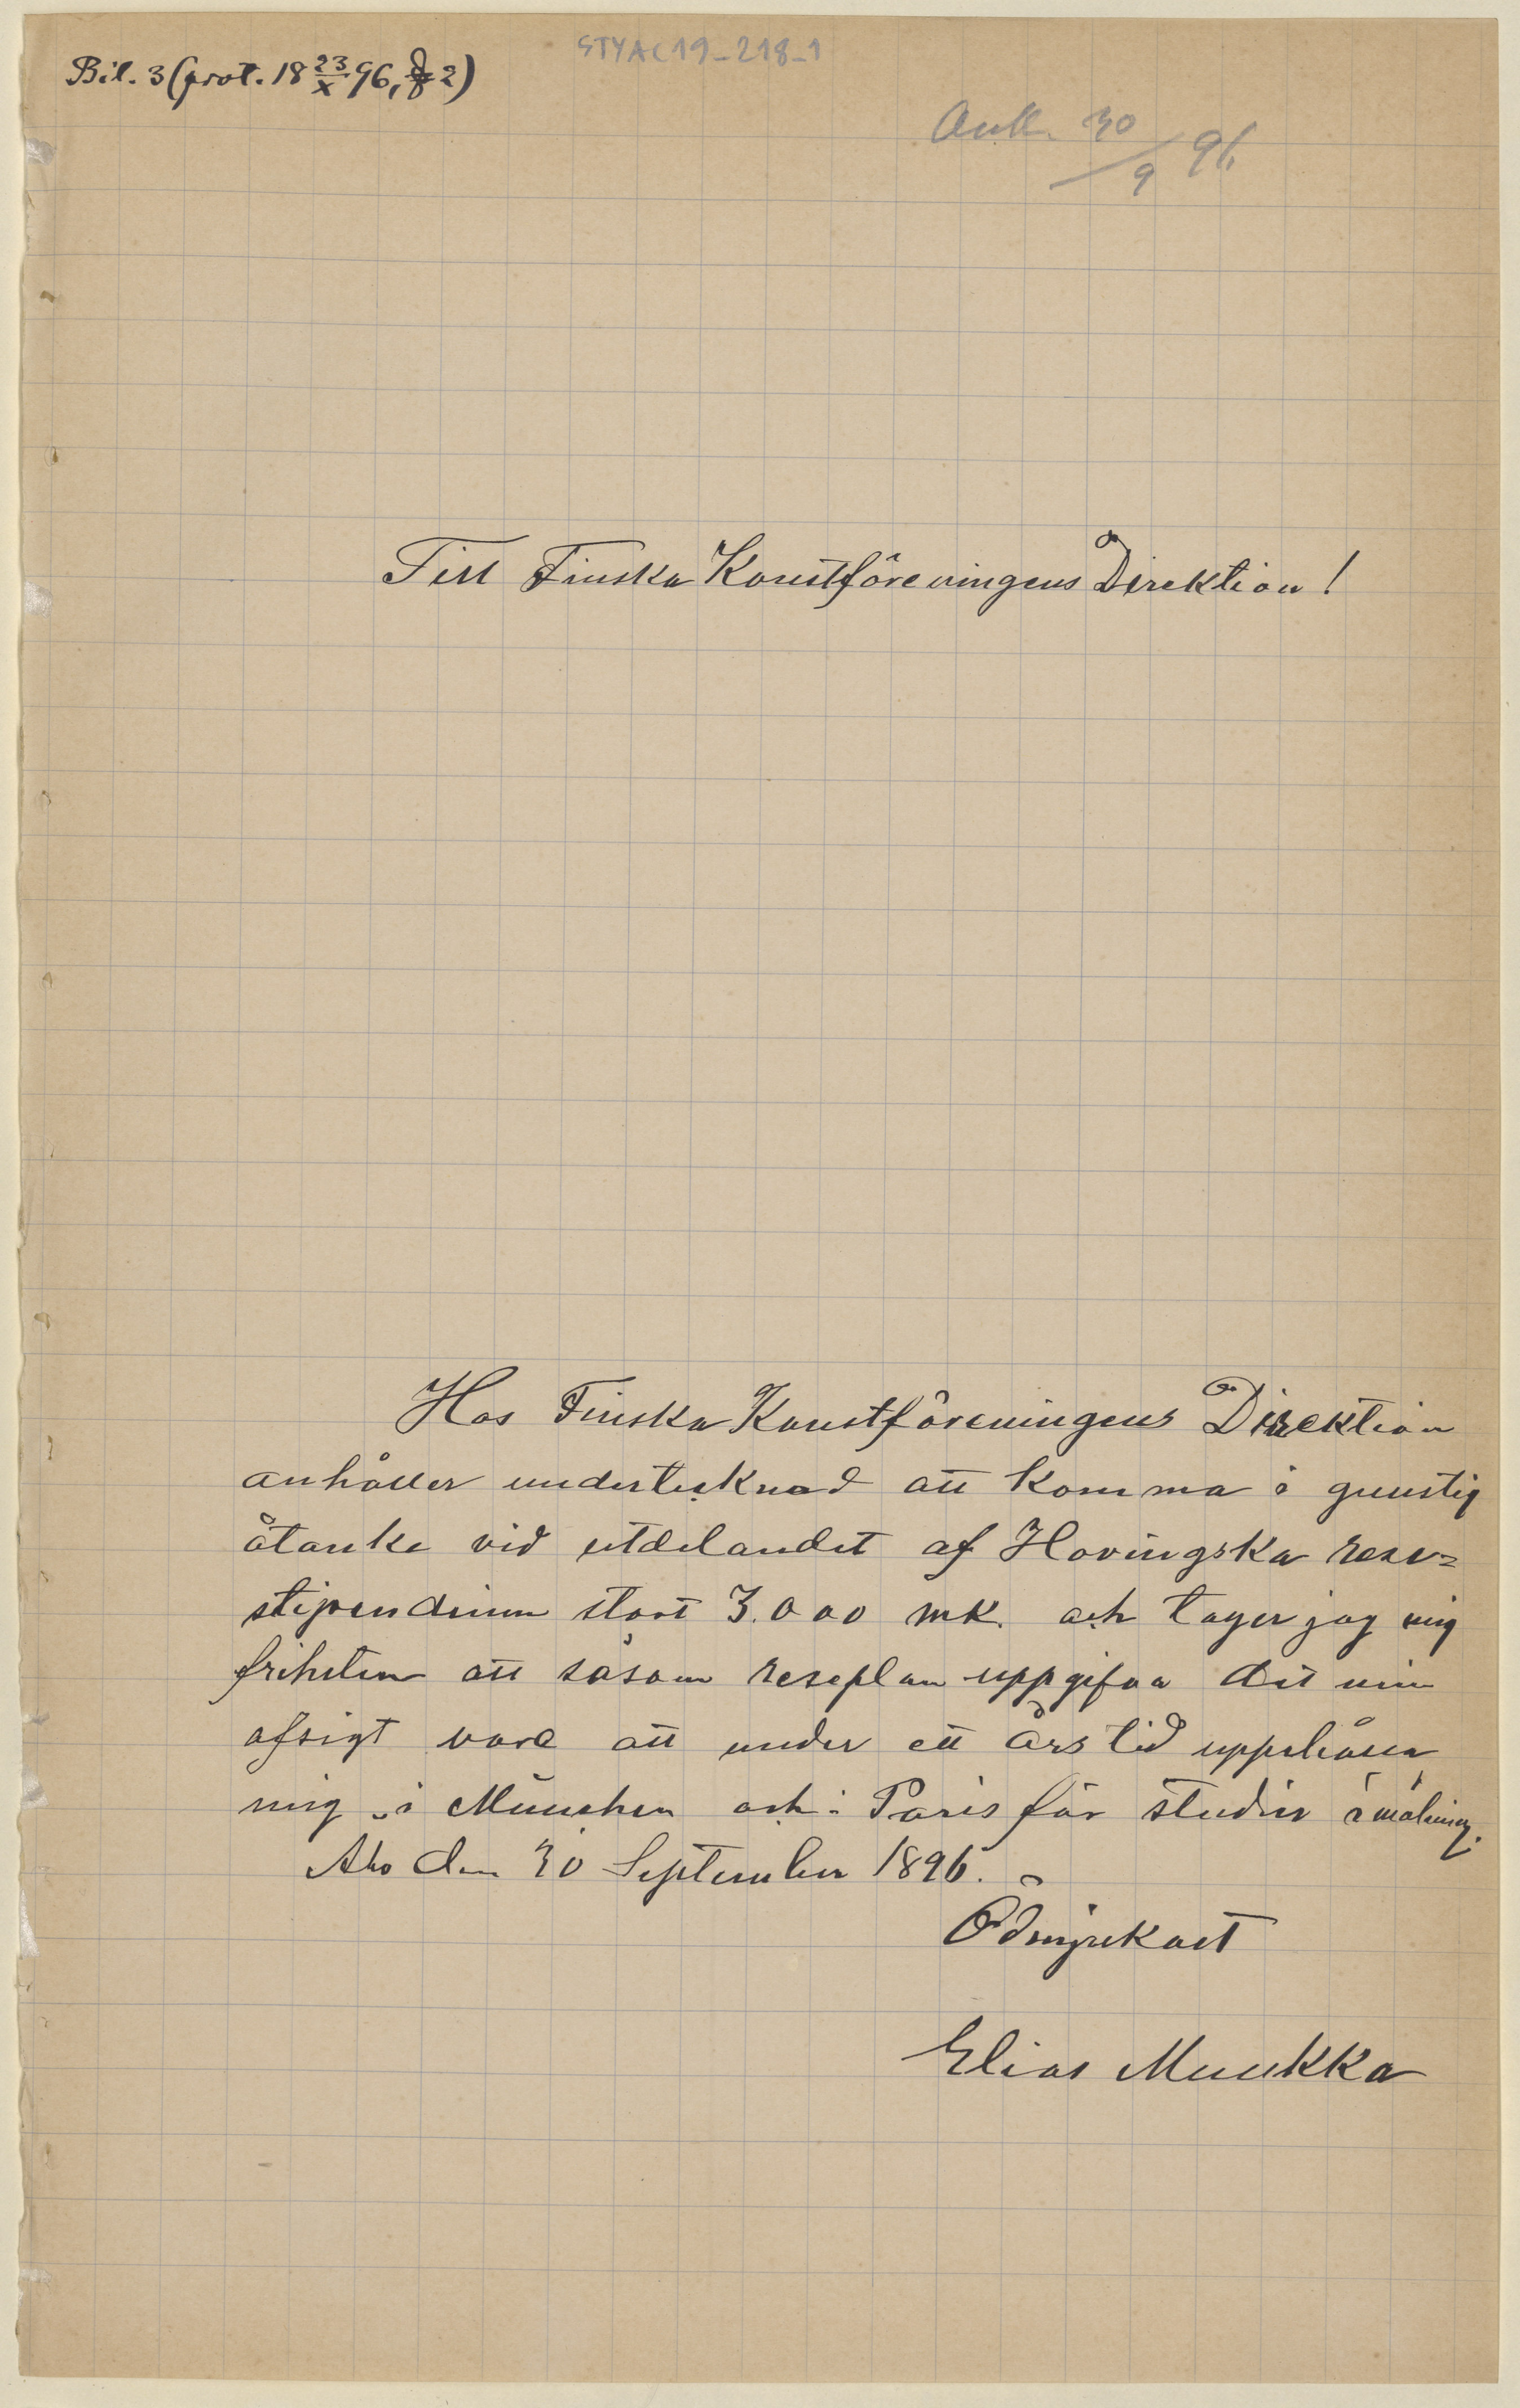 STYAC19_218_1
Bil. 3 (prot. 18 23/X 96, § 2)
Ank. 30/9 96
Till Finska Konstföreningens Direktion!
Hos Finska Konstföreningens Direktion
anhåller undertecknad att komma i gunstig
åtanke vid utdelandet af Hovingska rese=
stipendium stort 3.000 mk. och tager jag mig
friheten att såsom reseplan uppgifva det min
afsigt vara att under ett års tid uppehålla
mig i München och i Paris för studier i målning.
Åbo den 30 September 1896.
Ödmjukast
Elias Muukka